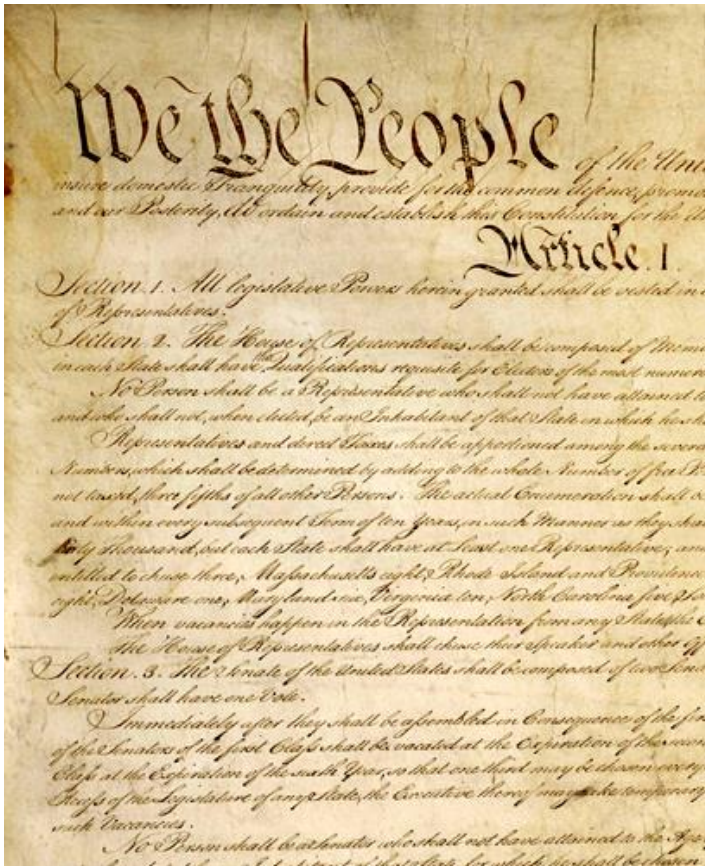 We the People of the Uni
insure domestic Tranquility, provide for the common defence, promo
and our Posterity, do ordain and establish this Constitution for the U
Article. I.
Section. 1. All legislative Powers herein granted shall be vested in a
of Representatives.
Section. 2. The House of Representatives shall be composed of Mem
in each State shall have the Qualifications requisite for Electors of the most numero
No Person shall be a Representative who shall not have attained to
and who shall not, when elected, be an Inhabitant of that State in which he sh
Representatives and direct Taxes shall be apportioned among the severa
Numbers, which shall be determined by adding to the whole Number of free P
not taxed, three fifths of all other Persons. The actual Enumeration shall be
and within every subsequent Term of ten Years, in such Manner as they shal
thirty Thousand, but each State shall have at Least one Representative; and
entitled to chuse three, Massachusetts eight, Rhode Island and Providence
eight, Delaware one, Maryland six, Virginia ten, North Carolina five, So
When vacancies happen in the Representation from any State, the E
The House of Representatives shall chuse their Speaker and other Off
Section. 3. The Senate of the United States shall be composed of two Sena
Senator shall have one Vote.
Immediately after they shall be assembled in Consequence of the firs
of the Senators of the first Class shall be vacated at the Expiration of the secon
Class at the Expiration of the sixth Year, so that one third may be chosen every
Recess of the Legislature of any State, the Executive thereof may make temporary
such Vacancies.
No Person shall be a Senator who shall not have attained to the Age
not, when elected, be an Inhabitant of that State for which he shall be chosen